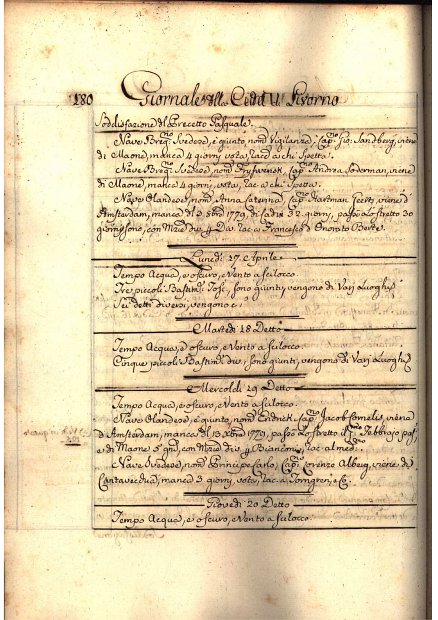 180 Giornale della Città di Livorno
Soddisfazione del Precetto Pasquale.
Nave Svedese, è giunto nom Vigilanza, Cap.no Sig. Sandberg, viene
di Maone, manca 4 giorni, vota, a chi Spetta.
Nave Svedese, nom Cap.no Andrea Soderman, viene
di Maone, manca 4 giorni, vota, a chi Spetta.
Nave Olandese, nom Anna Caterina Cap.no Hartman Geerts, viene d'
Amsterdam, manca del 1779, di Cadice 32 giorni, passò Lo stretto 30
giorni sono, con Francesco d'Onorato Berte.
Lunedì 17 Aprile
Tempo Acqua, e oscuro, e Vento a scilocco.
Tre piccoli Bastim.ti Tosc. sono giunti, vengono di Varj Luoghi
Sei detti diversi, vengono
Martedì 18 Detto
Tempo Acqua, e oscuro, e Vento a scilocco.
Cinque piccoli Bastim.ti div. sono giunti, vengono di Varj Luoghi
Mercoldì 19 Detto
Tempo Acqua, e oscuro, e Vento a scilocco.
Nave Olandese, è giunto, nom Cap.no Jacob Cornelis, viene
d'Amsterdam, manca del 13 1779, passò Lo stretto Febbraio pas.
e di Maone 5 gni, con Bianconi
Nave Svedese, nom Principe Carlo, Cap.no Lorenzo Alberg, viene di
manca 3 giorni, vota, a Törngren, e C.
Giovedì 20 Detto
Tempo Acqua, e oscuro, e Vento a scilocco.